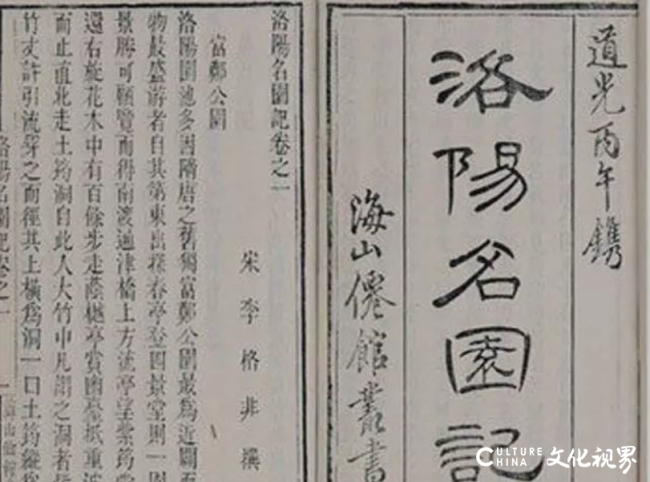 道光丙午鐫
洛陽名園記
海山僊館叢書
洛陽名園記卷之一
宋李格非撰
富鄭公園
洛陽園池多因隋唐之舊獨富鄭公園最為近闢而
物最盛游者自其第東出探春亭登四景堂則一園
景勝可顧覽而得南渡通津橋上方流亭望紫筠堂
還右旋花木中有百餘步走蔭樾亭賞幽臺抵重波
而止直北走土筠洞自此入大竹中凡謂之洞者
竹丈許引流穿之而徑其上橫為洞一曰土筠縱為
洛陽名園記卷之一
一
CULTURE
CHINA
文化视界